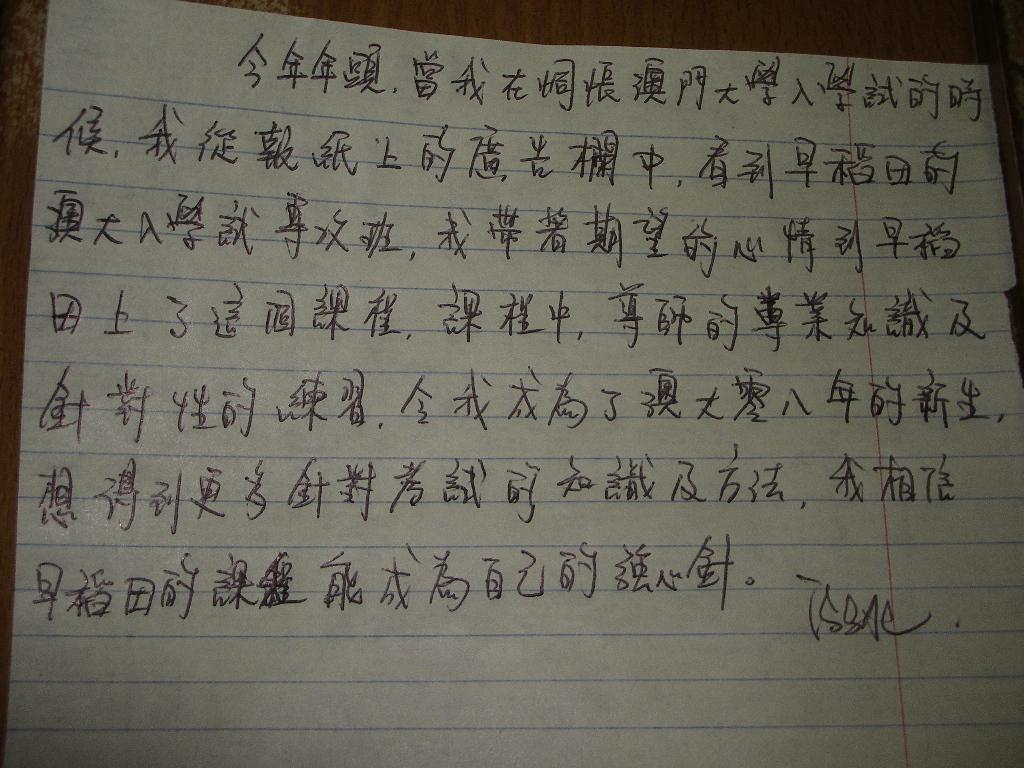 今年年頭,當我在惆悵澳門大學入學試的時
候,我從報紙上的廣告欄中,看到早稻田的
澳大入學試專攻班,我帶著期望的心情到早稻
田上了這個課程,課程中,導師的專業知識及
針對性的練習,令我成為了澳大零八年的新生,
想得到更多針對考試的知識及方法,我相信
早稻田的課程能成為自己的強心針。